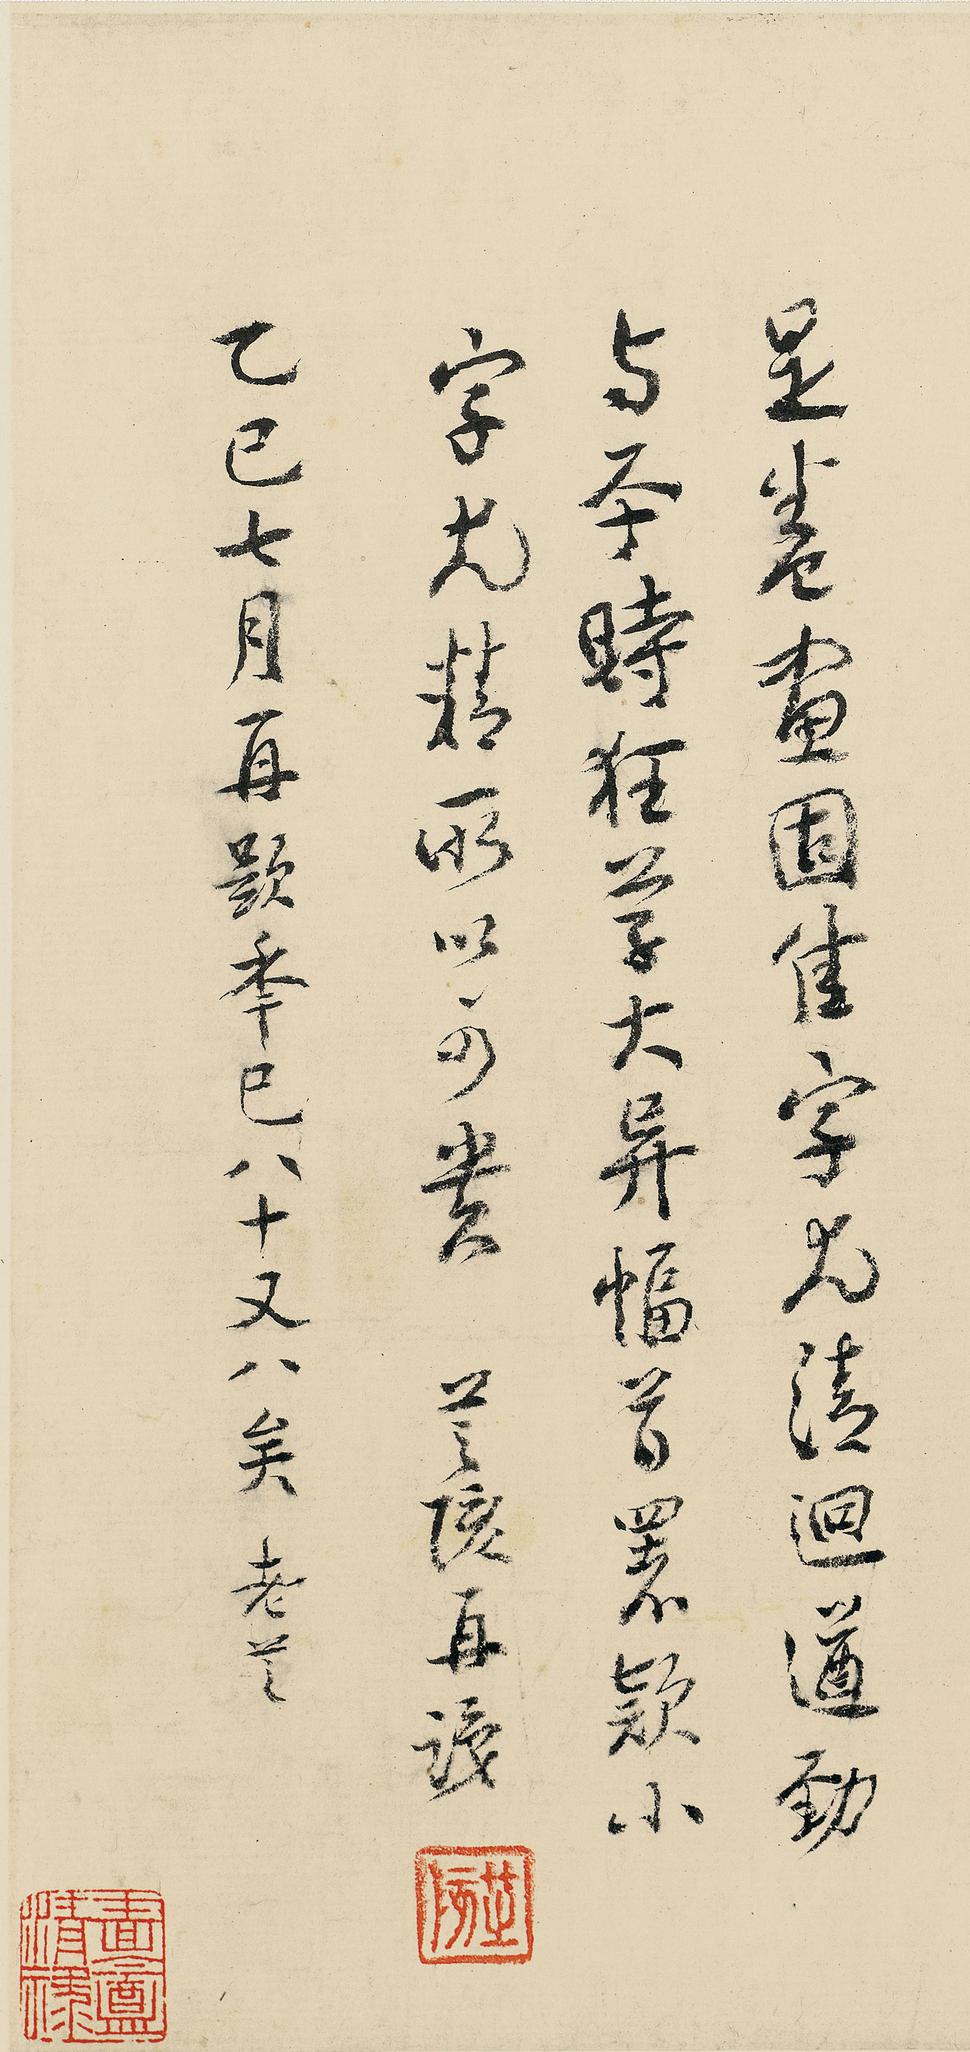 是卷畫固佳字尤清迥遒勁
与平時狂草大异幅首署款小
字尤精所以可貴 芝陔再識
乙巳七月再題季已八十又八矣 老芝
芝陔
書畫清祿